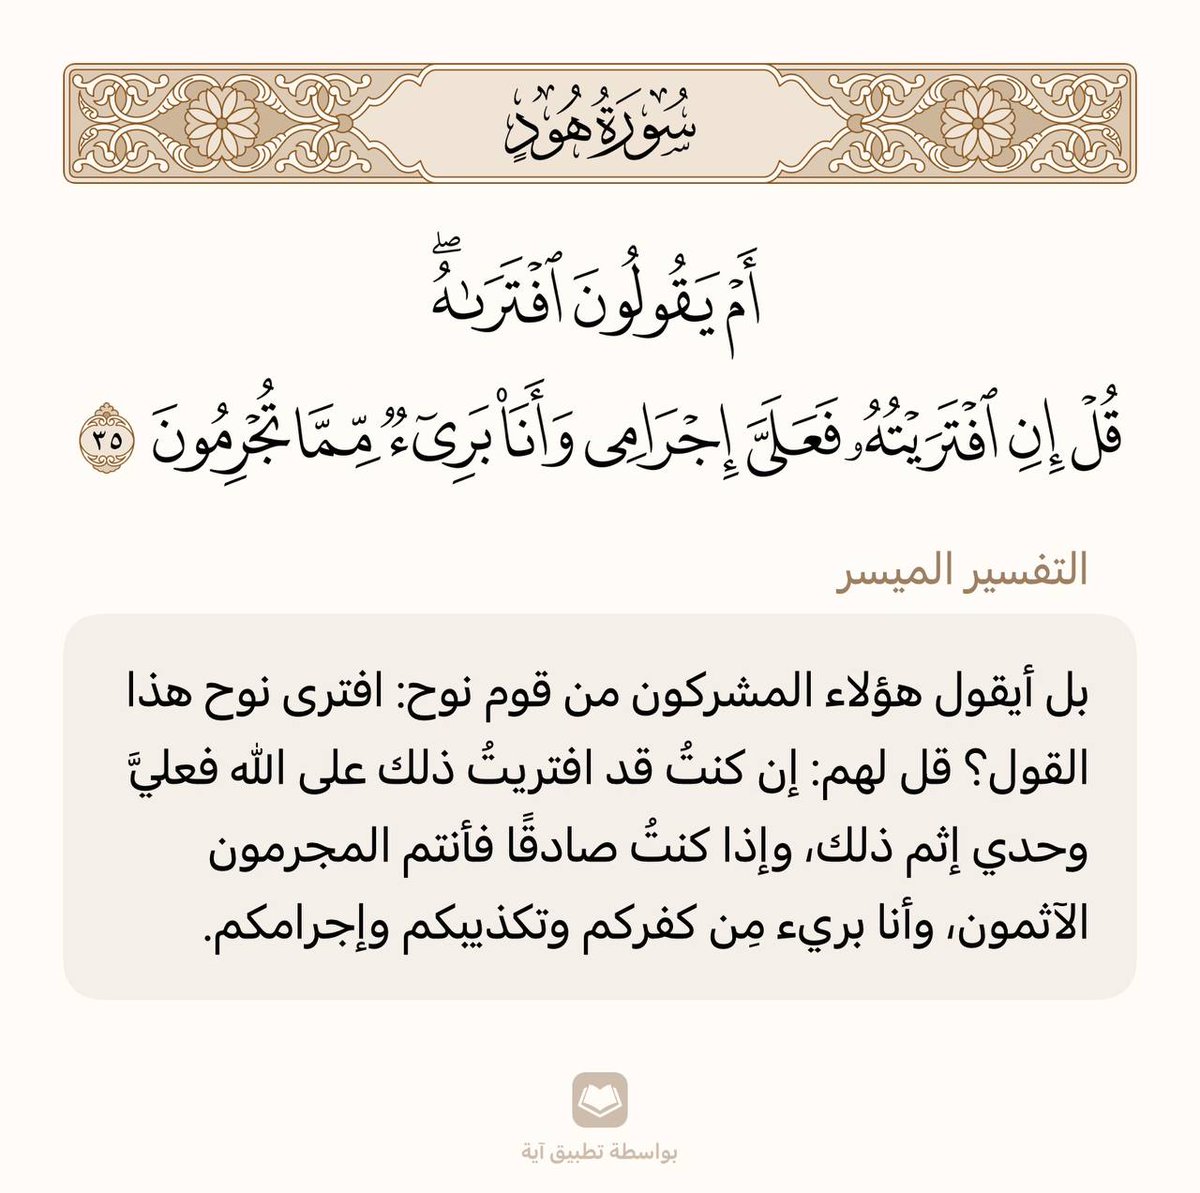 سُورَةُ هُودٍ
أَمۡ يَقُولُونَ ٱفۡتَرَىٰهُۖ
قُلۡ إِنِ ٱفۡتَرَيۡتُهُۥ فَعَلَيَّ إِجۡرَامِي وَأَنَا۠ بَرِيٓءٞ مِّمَّا تُجۡرِمُونَ ٣٥
التفسير الميسر
بل أيقول هؤلاء المشركون من قوم نوح: افترى نوح هذا
القول؟ قل لهم: إن كنتُ قد افتريتُ ذلك على الله فعليَّ
وحدي إثم ذلك، وإذا كنتُ صادقًا فأنتم المجرمون
الآثمون، وأنا بريء مِن كفركم وتكذيبكم وإجرامكم.
بواسطة تطبيق آية